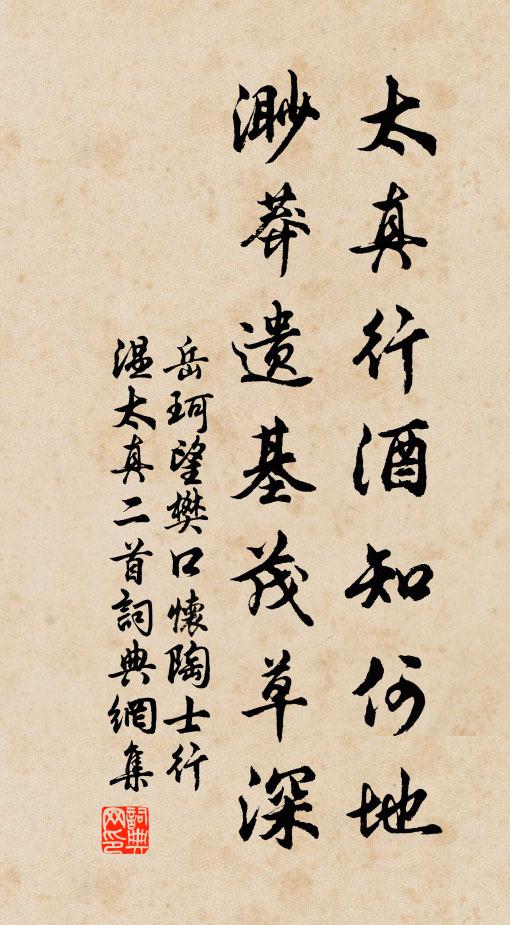 太真行酒知何地
渺莽遺基茂草深
岳珂望樊口懷陶士行
溫太真二首詞典網集
詞典网印